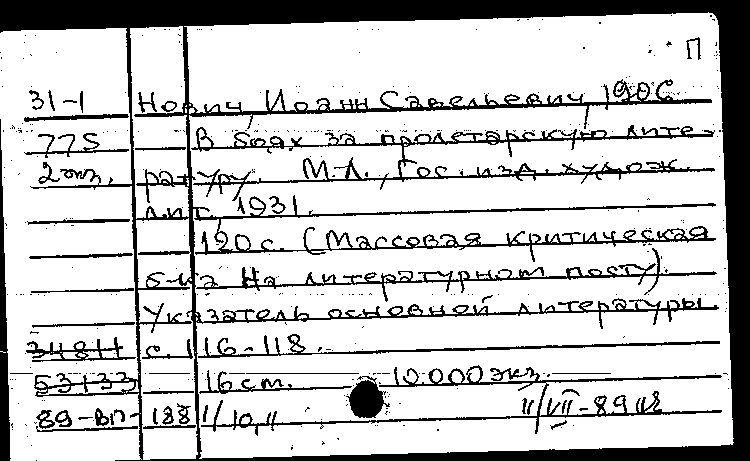 П
31-1 Нович, Иоанн Савельевич, 1906
775 В боях за пролетарскую лите-
2 экз. ратуру. М.-Л., Гос. изд. худож.
лит., 1931.
120 с. (Массовая критическая
б-ка На литературном посту).
Указатель основной литературы
34811 с. 116-118.
53133 16 см. 10.000 экз.
89-ВП- 188 1/10,11